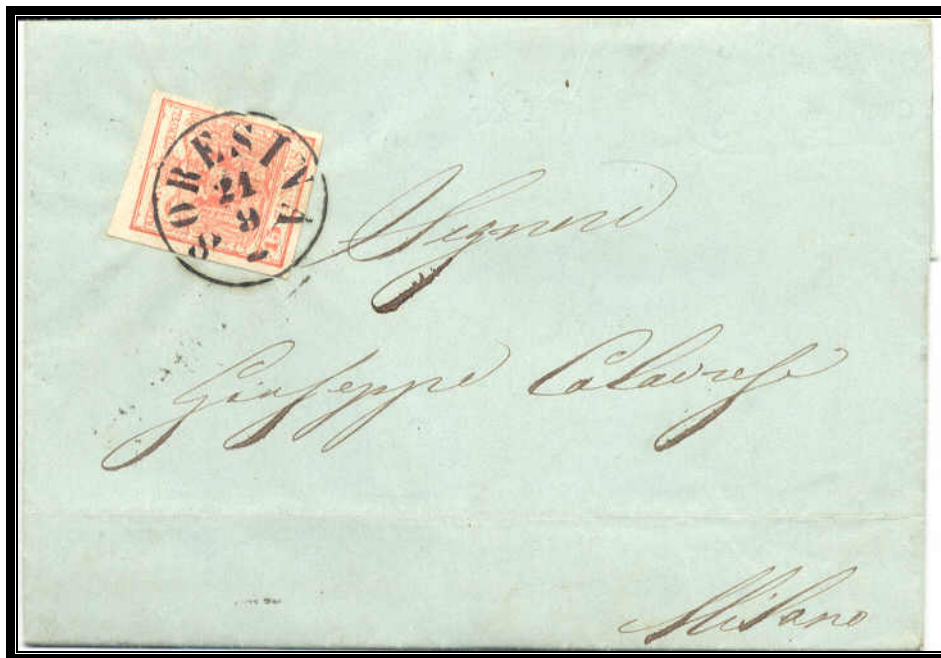 SORESINA
21
9
Signore
Giuseppe Calabresi
Milano